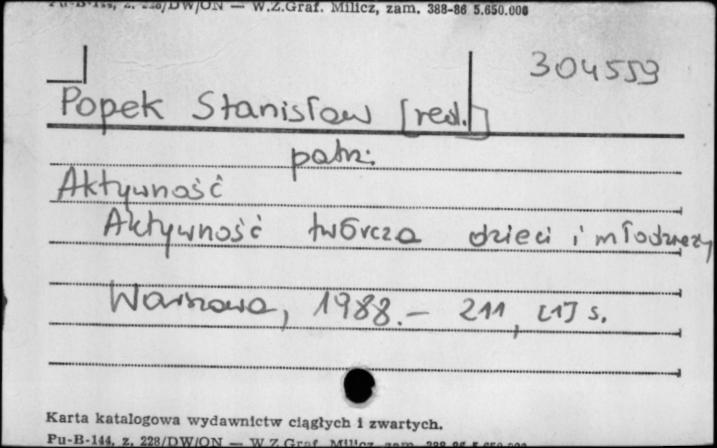 Pu-B-144, z. 228/DW/ON — W.Z.Graf. Milicz, zam. 388-86 5.650.000
304559
Popek Stanisław [red.]
patrz:
Aktywność
Aktywność twórcza dzieci i młodzieży
Warszawa, 1988. — 211, [1] s.
Karta katalogowa wydawnictw ciągłych i zwartych.
Pu-B-144, z. 228/DW/ON — W.Z.Graf. Milicz, zam. 388-86 5.650.000